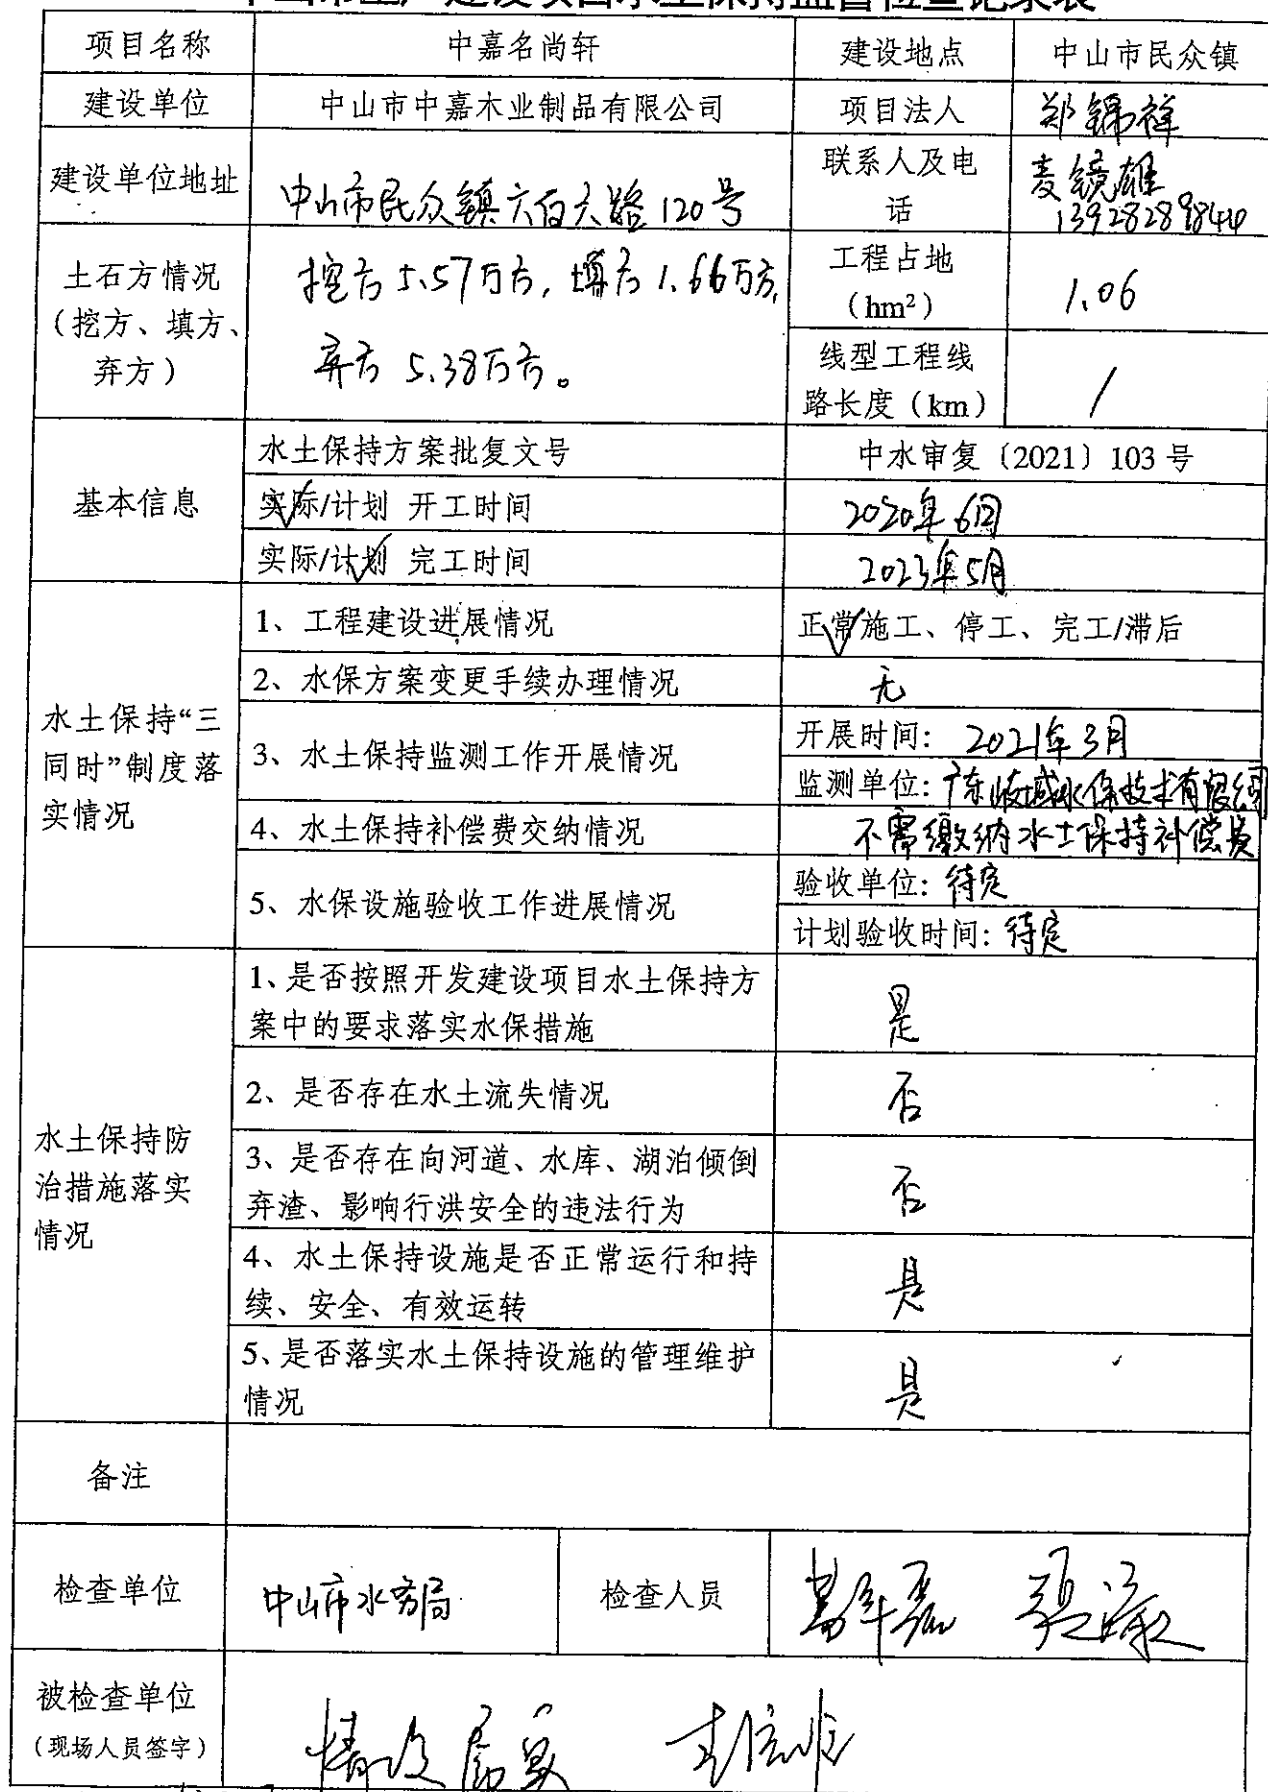 中山市生产建设项目水土保持监督检查记录表
项目名称 中嘉名尚轩 建设地点 中山市民众镇
建设单位 中山市中嘉木业制品有限公司 项目法人 郑锦祥
建设单位地址 中山市民众镇六百六路120号 联系人及电
话 麦镜雄
13928289844
土石方情况
(挖方、填方、
弃方) 挖方5.57万方,填方1.66万方,
弃方5.38万方。
工程占地
(hm²) 1.06
线型工程线
路长度(km) /
基本信息 水土保持方案批复文号 中水审复〔2021〕103号
实际/计划 开工时间 2020年6月
实际/计划 完工时间 2023年5月
水土保持“三
同时”制度落
实情况
1、工程建设进展情况 正常施工、停工、完工/滞后
2、水保方案变更手续办理情况 无
3、水土保持监测工作开展情况 开展时间:2021年3月
监测单位:广东 水保技术有限公司
4、水土保持补偿费交纳情况 不需缴纳水土保持补偿费
5、水保设施验收工作进展情况 验收单位:待定
计划验收时间:待定
水土保持防
治措施落实
情况
1、是否按照开发建设项目水土保持方
案中的要求落实水保措施 是
2、是否存在水土流失情况 否
3、是否存在向河道、水库、湖泊倾倒
弃渣、影响行洪安全的违法行为 否
4、水土保持设施是否正常运行和持
续、安全、有效运转 是
5、是否落实水土保持设施的管理维护
情况 是
备注
检查单位 中山市水务局 检查人员
被检查单位
(现场人员签字)